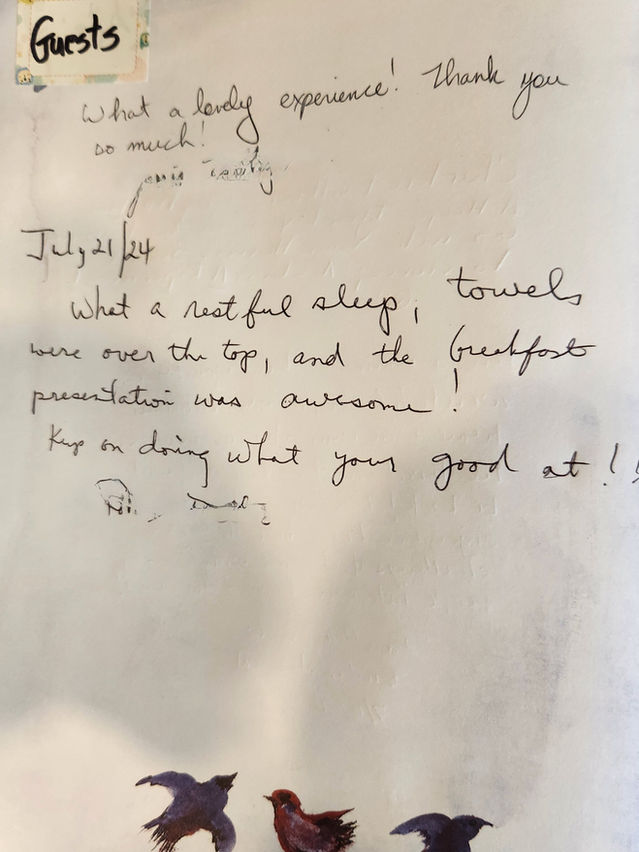 Guests
What a lovely experience! Thank you
so much!
July 21/24
What a restful sleep, towels
were over the top, and the breakfast
presentation was awesome!
Keep on doing what your good at!!